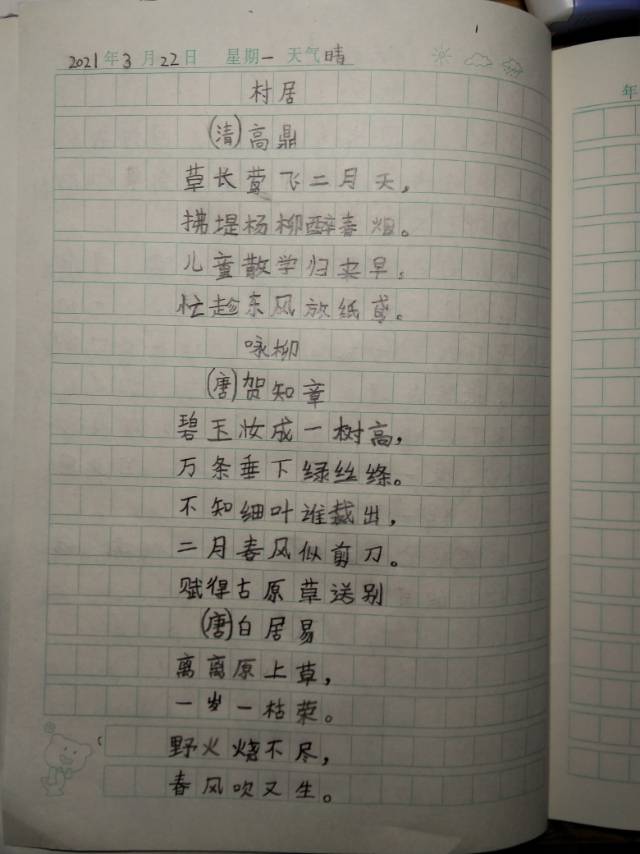 2021年3月22日 星期一 天气晴
村居
(清)高鼎
草长莺飞二月天,
拂堤杨柳醉春烟。
儿童散学归来早,
忙趁东风放纸鸢。
咏柳
(唐)贺知章
碧玉妆成一树高,
万条垂下绿丝绦。
不知细叶谁裁出,
二月春风似剪刀。
赋得古原草送别
(唐)白居易
离离原上草,
一岁一枯荣。
野火烧不尽,
春风吹又生。
年